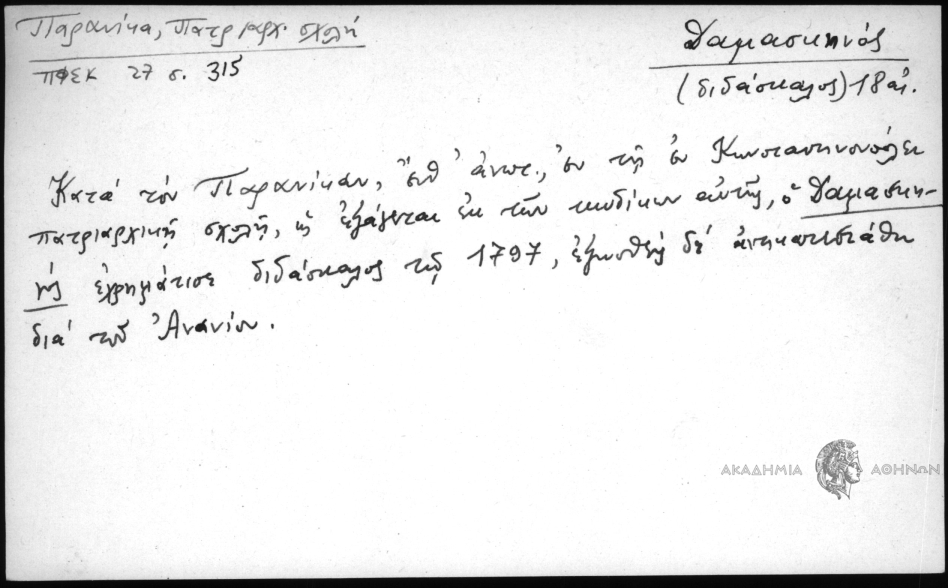 Παρανίκα, Πατριαρχ. σχολή
ΠΦΣΚ 27 σ. 315
Δαμασκηνός
(διδάσκαλος) 18 αἰ.
Κατά τόν Παρανίκαν, ἔνθ' ἀνωτ., ἐν τῇ ἐν Κωνσταντινουπόλει
πατριαρχικῇ σχολῇ, ὡς ἐξάγεται ἐκ τῶν κωδίκων αὐτῆς, ὁ Δαμασκη-
νός ἐχρημάτισε διδάσκαλος τῷ 1797, ἐξωσθείς δέ ἀντικατεστάθη
διά τοῦ Ἀνανίου.
ΑΚΑΔΗΜΙΑ ΑΘΗΝΩΝ